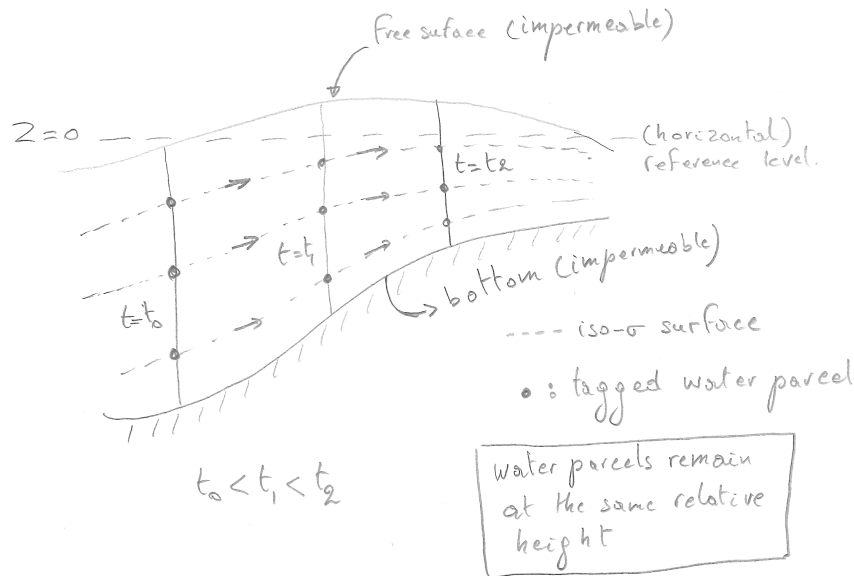 free suface (impermeable)
Z=0
(horizontal)
reference level.
t=t2
t=t1
t=t0
bottom (impermeable)
---- iso-σ surface
• : tagged water parcel
t0 < t1 < t2
water parcels remain
at the same relative
height